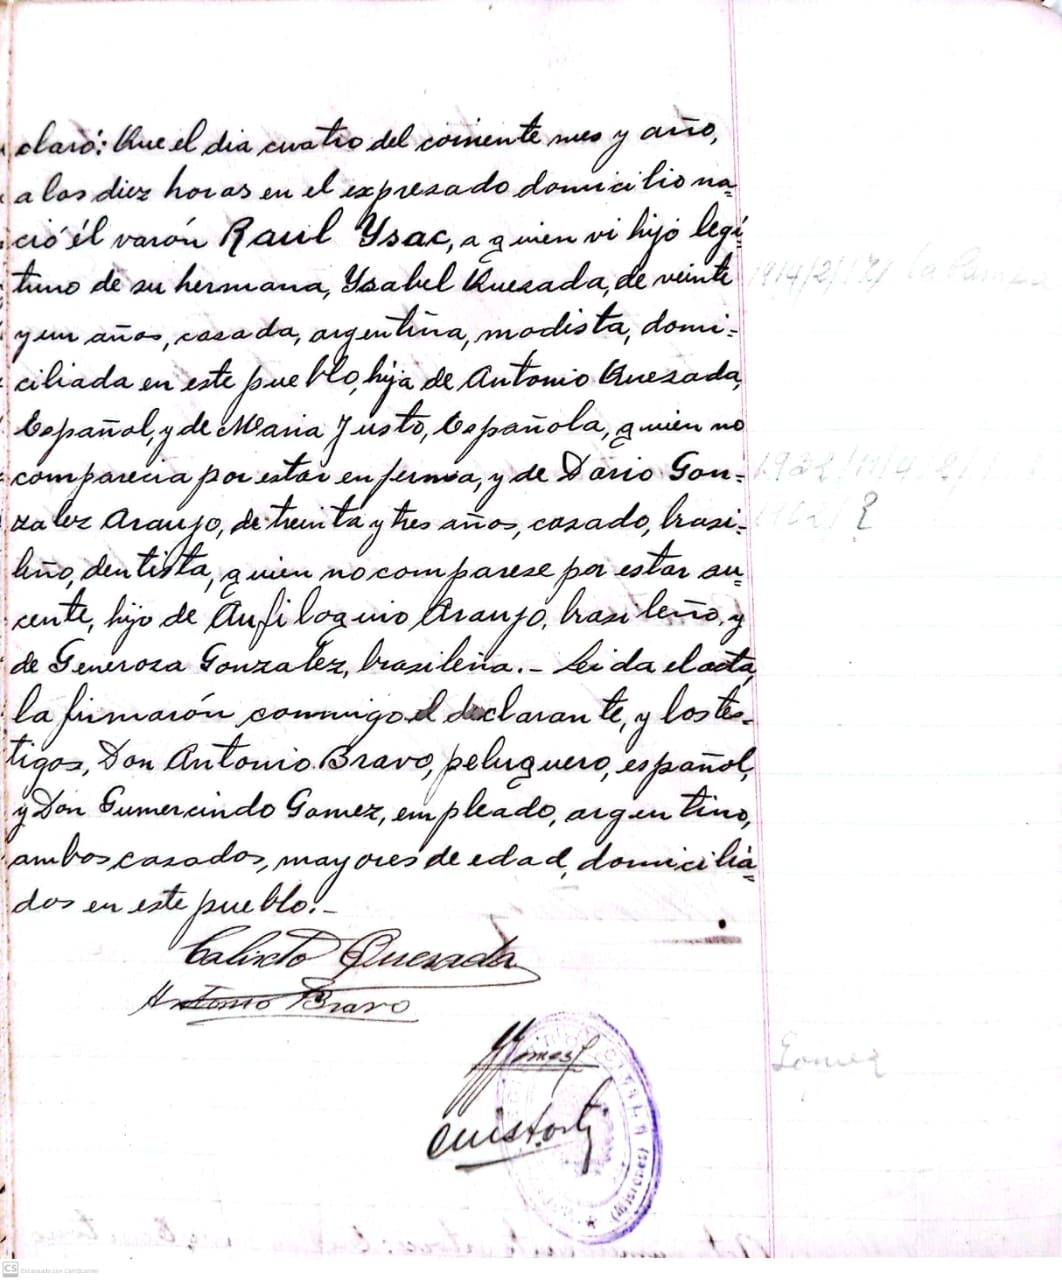 claró: Que el dia cuatro del corriente mes y año,
a las diez horas en el expresado domicilio na=
ció él varón Raul Ysac, a quien vi hijo legí=
timo de su hermana, Ysabel Quesada, de veinte
y un años, casada, argentina, modista, domi=
ciliada en este pueblo, hija de Antonio Quesada,
Español, y de Maria Justo, Española, quien no
comparecia por estar enferma, y de Dario Gon=
zalez Araujo, de treinta y tres años, casado, brasi=
leño, dentista, quien no comparese por estar au=
cente, hijo de Anfiloquio Araujo, brasileño, y
de Generosa Gonzalez, brasileña.- Leida el acta,
la firmarón conmigo el declarante, y los tes=
tigos, Don Antonio Bravo, peluquero, español,
y Don Gumercindo Gomez, empleado, argentino,
ambos casados, mayores de edad, domicilia=
dos en este pueblo.-
Calixto Quesada
Antonio Bravo
GGomez
(Misiones)
1914/2/17/ La Pampa
1902/ ?
Gomez
CS Escaneado con CamScanner